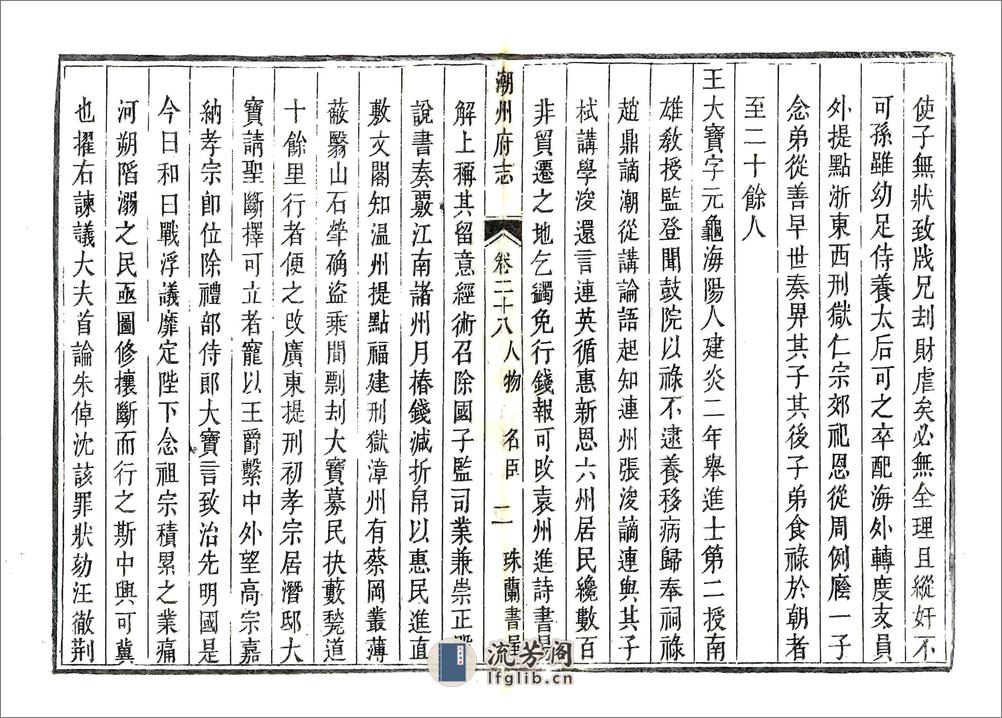 使子無狀致戕兄刦財虐矣必無全理且縱奸不
可孫雖幼足侍養太后可之卒配海外轉度支員
外提點浙東西刑獄仁宗郊祀恩從周例廕一子
念弟從善早世奏畀其子其後子弟食祿於朝者
至二十餘人
王大寶字元龜海陽人建炎二年舉進士第二授南
雄敎授監登聞鼓院以祿不逮養移病歸奉祠祿
趙鼎謫潮從講論語起知連州張浚謫連與其子
栻講學浚還言連英循惠新恩六州居民纔數百
非貿遷之地乞蠲免行錢報可改袁州進詩書易
潮州府志
卷二十八 人物 名臣
二
珠蘭書屋
解上稱其留意經術召除國子監司業兼崇正殿
說書奏覈江南諸州月樁錢減折帛以惠民進直
敷文閣知温州提點福建刑獄漳州有蔡岡叢薄
蔽翳山石犖确盜乘間剽刦大寶募民抉藪甃道
十餘里行者便之改廣東提刑初孝宗居潛邸大
寶請聖斷擇可立者寵以王爵繫中外望高宗嘉
納孝宗卽位除禮部侍郞大寶言致治先明國是
今日和曰戰浮議靡定陛下念祖宗積累之業痛
河朔䧟溺之民亟圖修攘斷而行之斯中興可冀
也擢右諫議大夫首論朱倬沈該罪狀劾汪徹荆
流芳阁
lfglib.cn